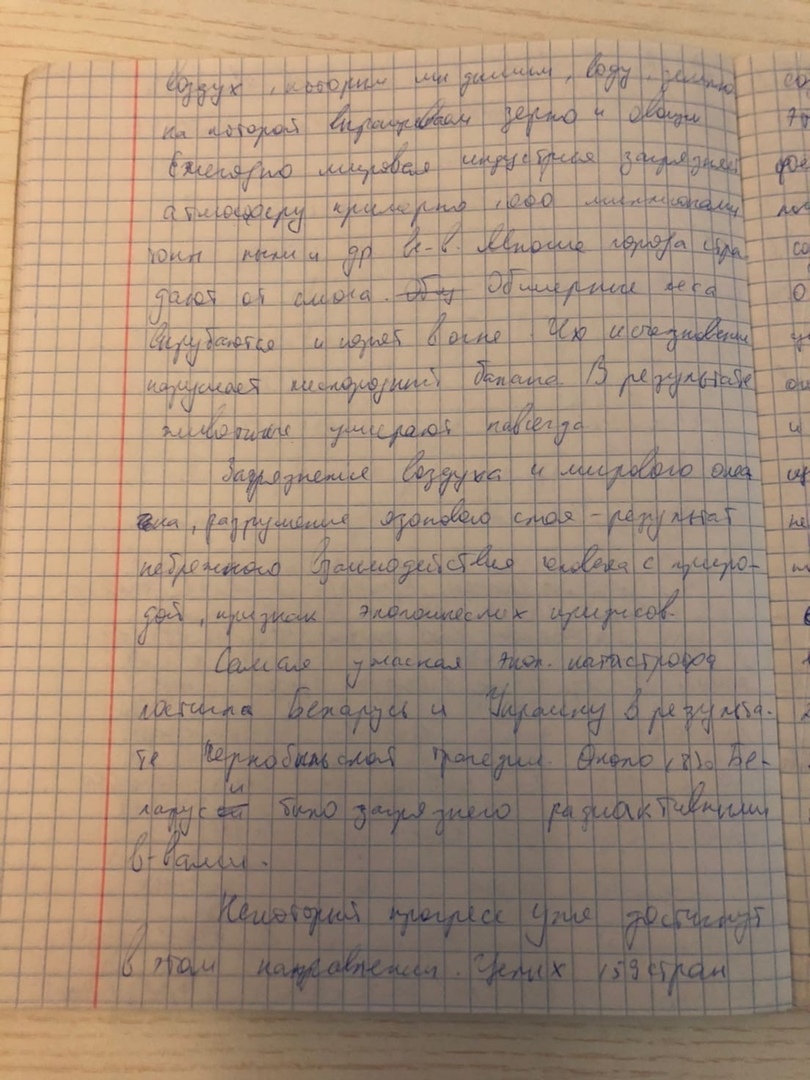 воздух, которым мы дышим, воду, землю
на которой выращиваем зерно и овощи
Ежегодно мировая индустрия загрязняет
атмосферу примерно 1000 миллионами
тонн пыли и др в-в. Многие города стра
дают от смога. Обширные леса
вырубаются и горят в огне. Их исчезновение
нарушает кислородный баланс. В результате
животные умирают навсегда
Загрязнение воздуха и мирового океа
на, разрушение озонового слоя - результат
небрежного взаимодействия человека с приро-
дой, признак экологических кризисов.
Самая ужасная экол. катастрофа
постигла Беларусь и Украину в результа-
те Чернобыльской трагедии. Около 18% Бе-
ларуси было загрязнено радиактивными
в-вами.
Некоторый прогресс уже достигнут
в этом направлении. Целых 159 стран
со
эт
и